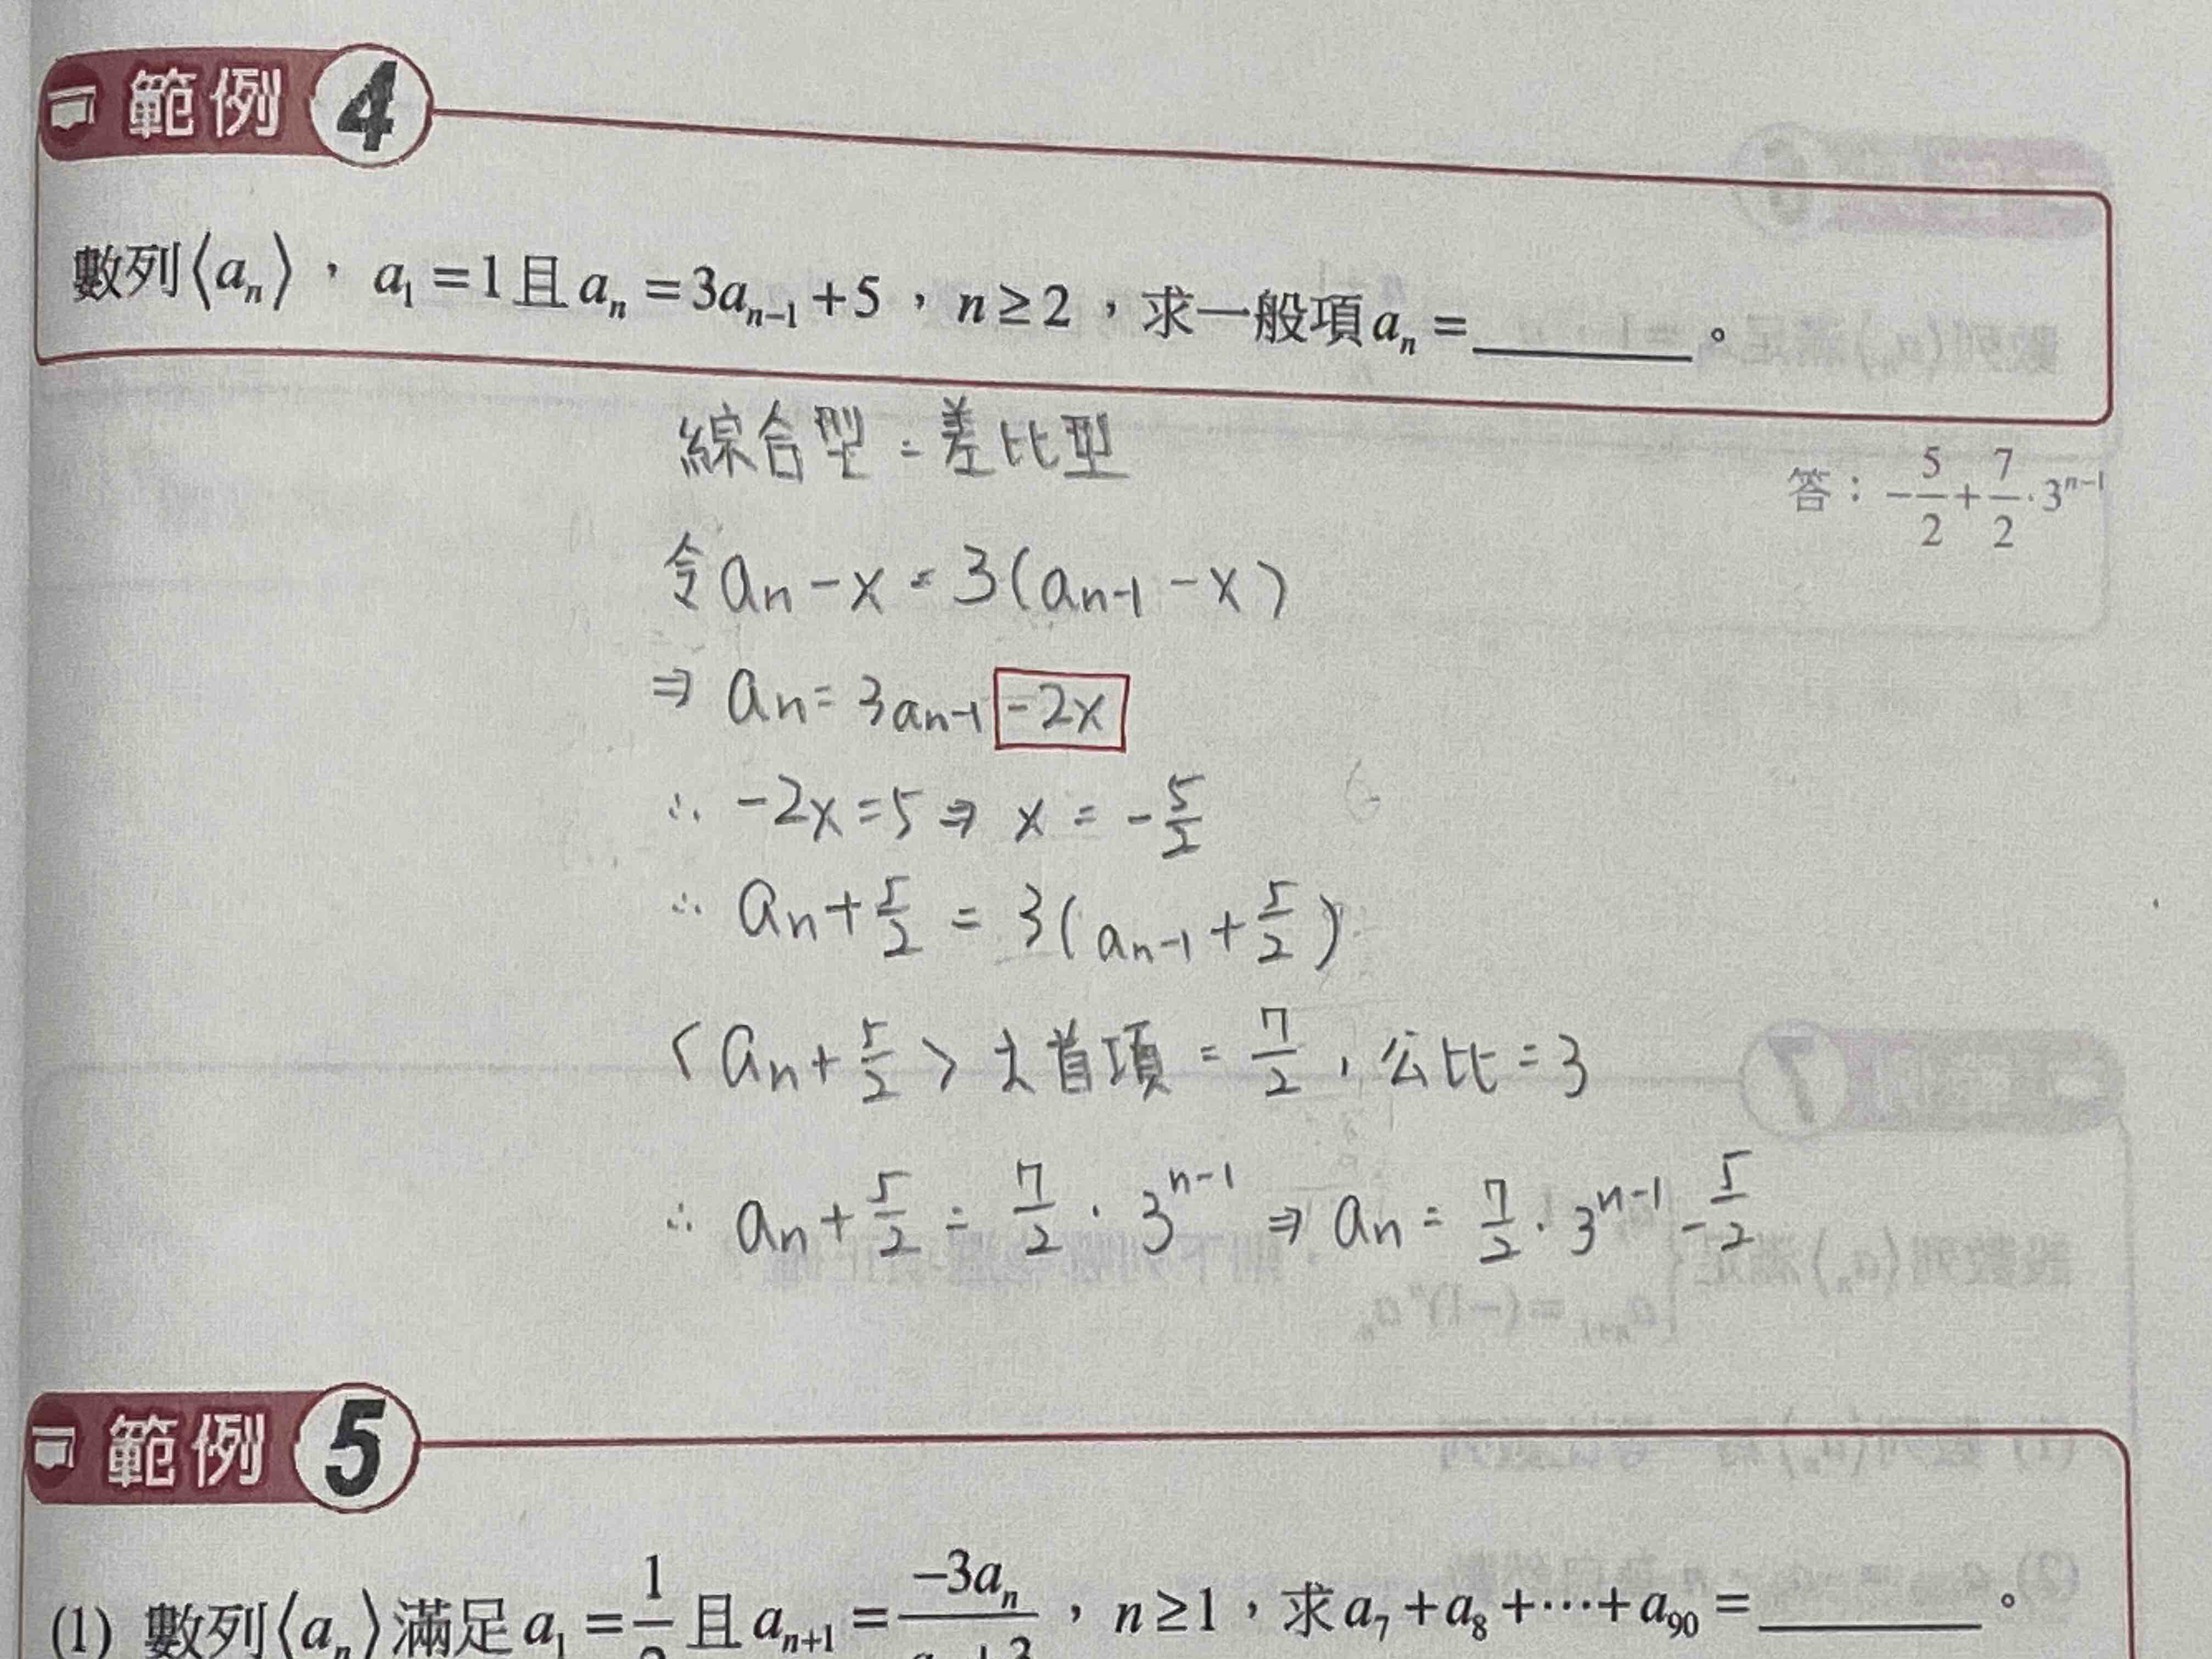 範例 4
數列⟨aₙ⟩，a₁=1且aₙ=3aₙ₋₁+5，n≥2，求一般項aₙ=______。
綜合型=差比型
答：-5/2+7/2·3ⁿ⁻¹
令 aₙ-x=3(aₙ₋₁-x)
⇒ aₙ=3aₙ₋₁-2x
∴ -2x=5 ⇒ x=-5/2
∴ aₙ+5/2=3(aₙ₋₁+5/2)
<aₙ+5/2> 首項=7/2,公比=3
∴ aₙ+5/2=7/2·3ⁿ⁻¹ ⇒ aₙ=7/2·3ⁿ⁻¹-5/2
範例 5
(1) 數列⟨aₙ⟩滿足a₁=1/ 且aₙ₊₁=-3aₙ/，n≥1，求a₇+a₈+⋯+a₉₀=______。